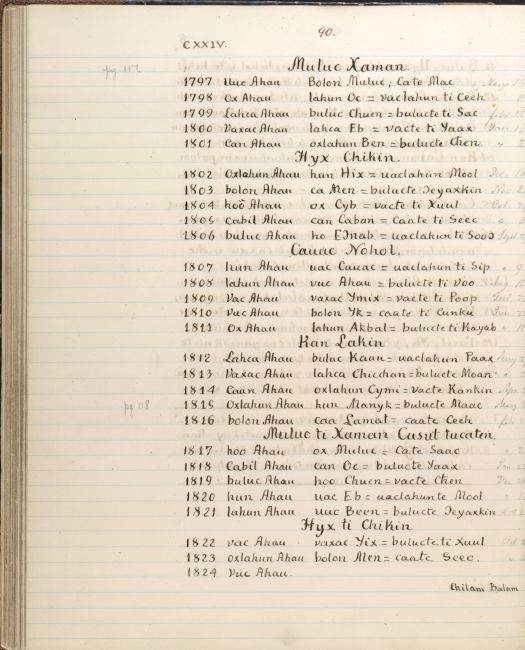 90.
CXXIV.
pg. 117
Muluc Xaman.
1797 Uuc Ahau Bolon Muluc, Cate Mac
1798 Ox Ahau lahun Oc = vaclahun ti Cech
1799 Lahca Ahau buluc Chuen = bulucte ti Sac
1800 Vaxac Ahau lahca Eb = vacte ti Yaax
1801 Can Ahau oxlahun Ben = bulucte Chen.
Hyx Chikin.
1802 Oxlahun Ahau hun Hix = uaclahun Mool
1803 bolon Ahau ca Men = bulucte Deyaxkin
1804 hoō Ahau ox Cyb = vacte ti Xuul
1805 cabil Ahau can Caban = Caate ti Seec
1806 buluc Ahau ho Eɔnab = uaclahun ti Sooɔ
Cauac Nohol.
1807 hun Ahau uac Cauac = uaclahun ti Sip
1808 lahun Ahau vuc Ahau = bulucte ti Voo
1809 Vac Ahau vaxac Ymix = vacte ti Poop
1810 Vuc Ahau bolon Yk = caate ti Cunku
1811 Ox Ahau lahun Akbal = bulucte ti Kayab
Kan Lakin
1812 Lahca Ahau buluc Kaan = uaclahun Paax
1813 Vaxac Ahau lahca Chicchan = bulucte Moan
1814 Caan Ahau oxlahun Cymi = vacte Kankin
pg. 118
1815 Oxlahun Ahau hun Manyk = bulucte Maac
1816 bolon Ahau caa Lamat = caate Cech
Muluc ti Xaman Cusut tucaten.
1817 hoo Ahau ox Muluc = Cate Saac
1818 Cabil Ahau can Oc = bulucte Yaax
1819 buluc Ahau hoo Chuen = vacte Chen
1820 hun Ahau uac Eb = uaclahunte Mool
1821 lahun Ahau uuc Been = bulucte Deyaxkin
Hyx ti Chikin
1822 vac Ahau vaxac Yix = bulucte ti Xuul
1823 oxlahun Ahau bolon Men = caate Seec.
1824 Vuc Ahau.
Chilam Balam